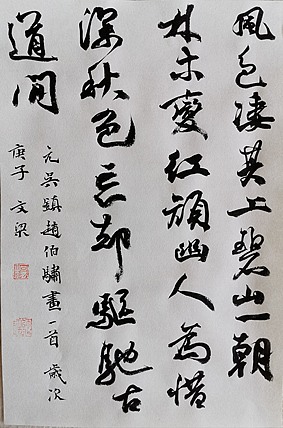 風色凄其上碧山一朝
林木變紅顏幽人為惜
深秋色忘却驅馳古
道間
元吳鎮趙伯驌畫一首歲次
庚子文梁